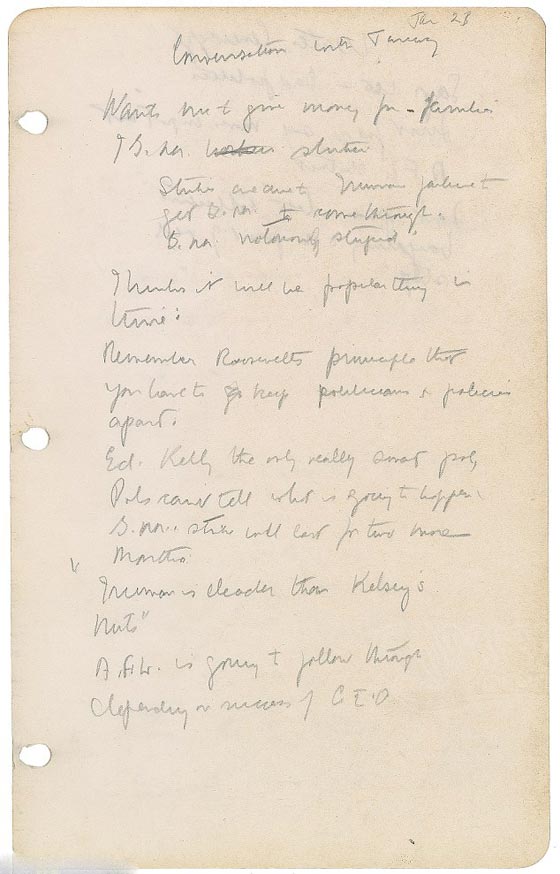 Jan 23
Conversation with Tommy
Wants me to give money for families
of G. M. strikers
Strikes are due to Truman failure to
get G. M. to come through.
G. M. notoriously stupid.
Thinks it will be popular thing in
time:
Remember Roosevelts principle that
you have to keep politicians & policies
apart.
Ed. Kelly the only really smart pol,
Pols can't tell what is going to happen.
G. M. strike will last for two more
months
"Truman is deader than Kelsey's
nuts"
A. F. L. is going to follow through
depending on success of C I O